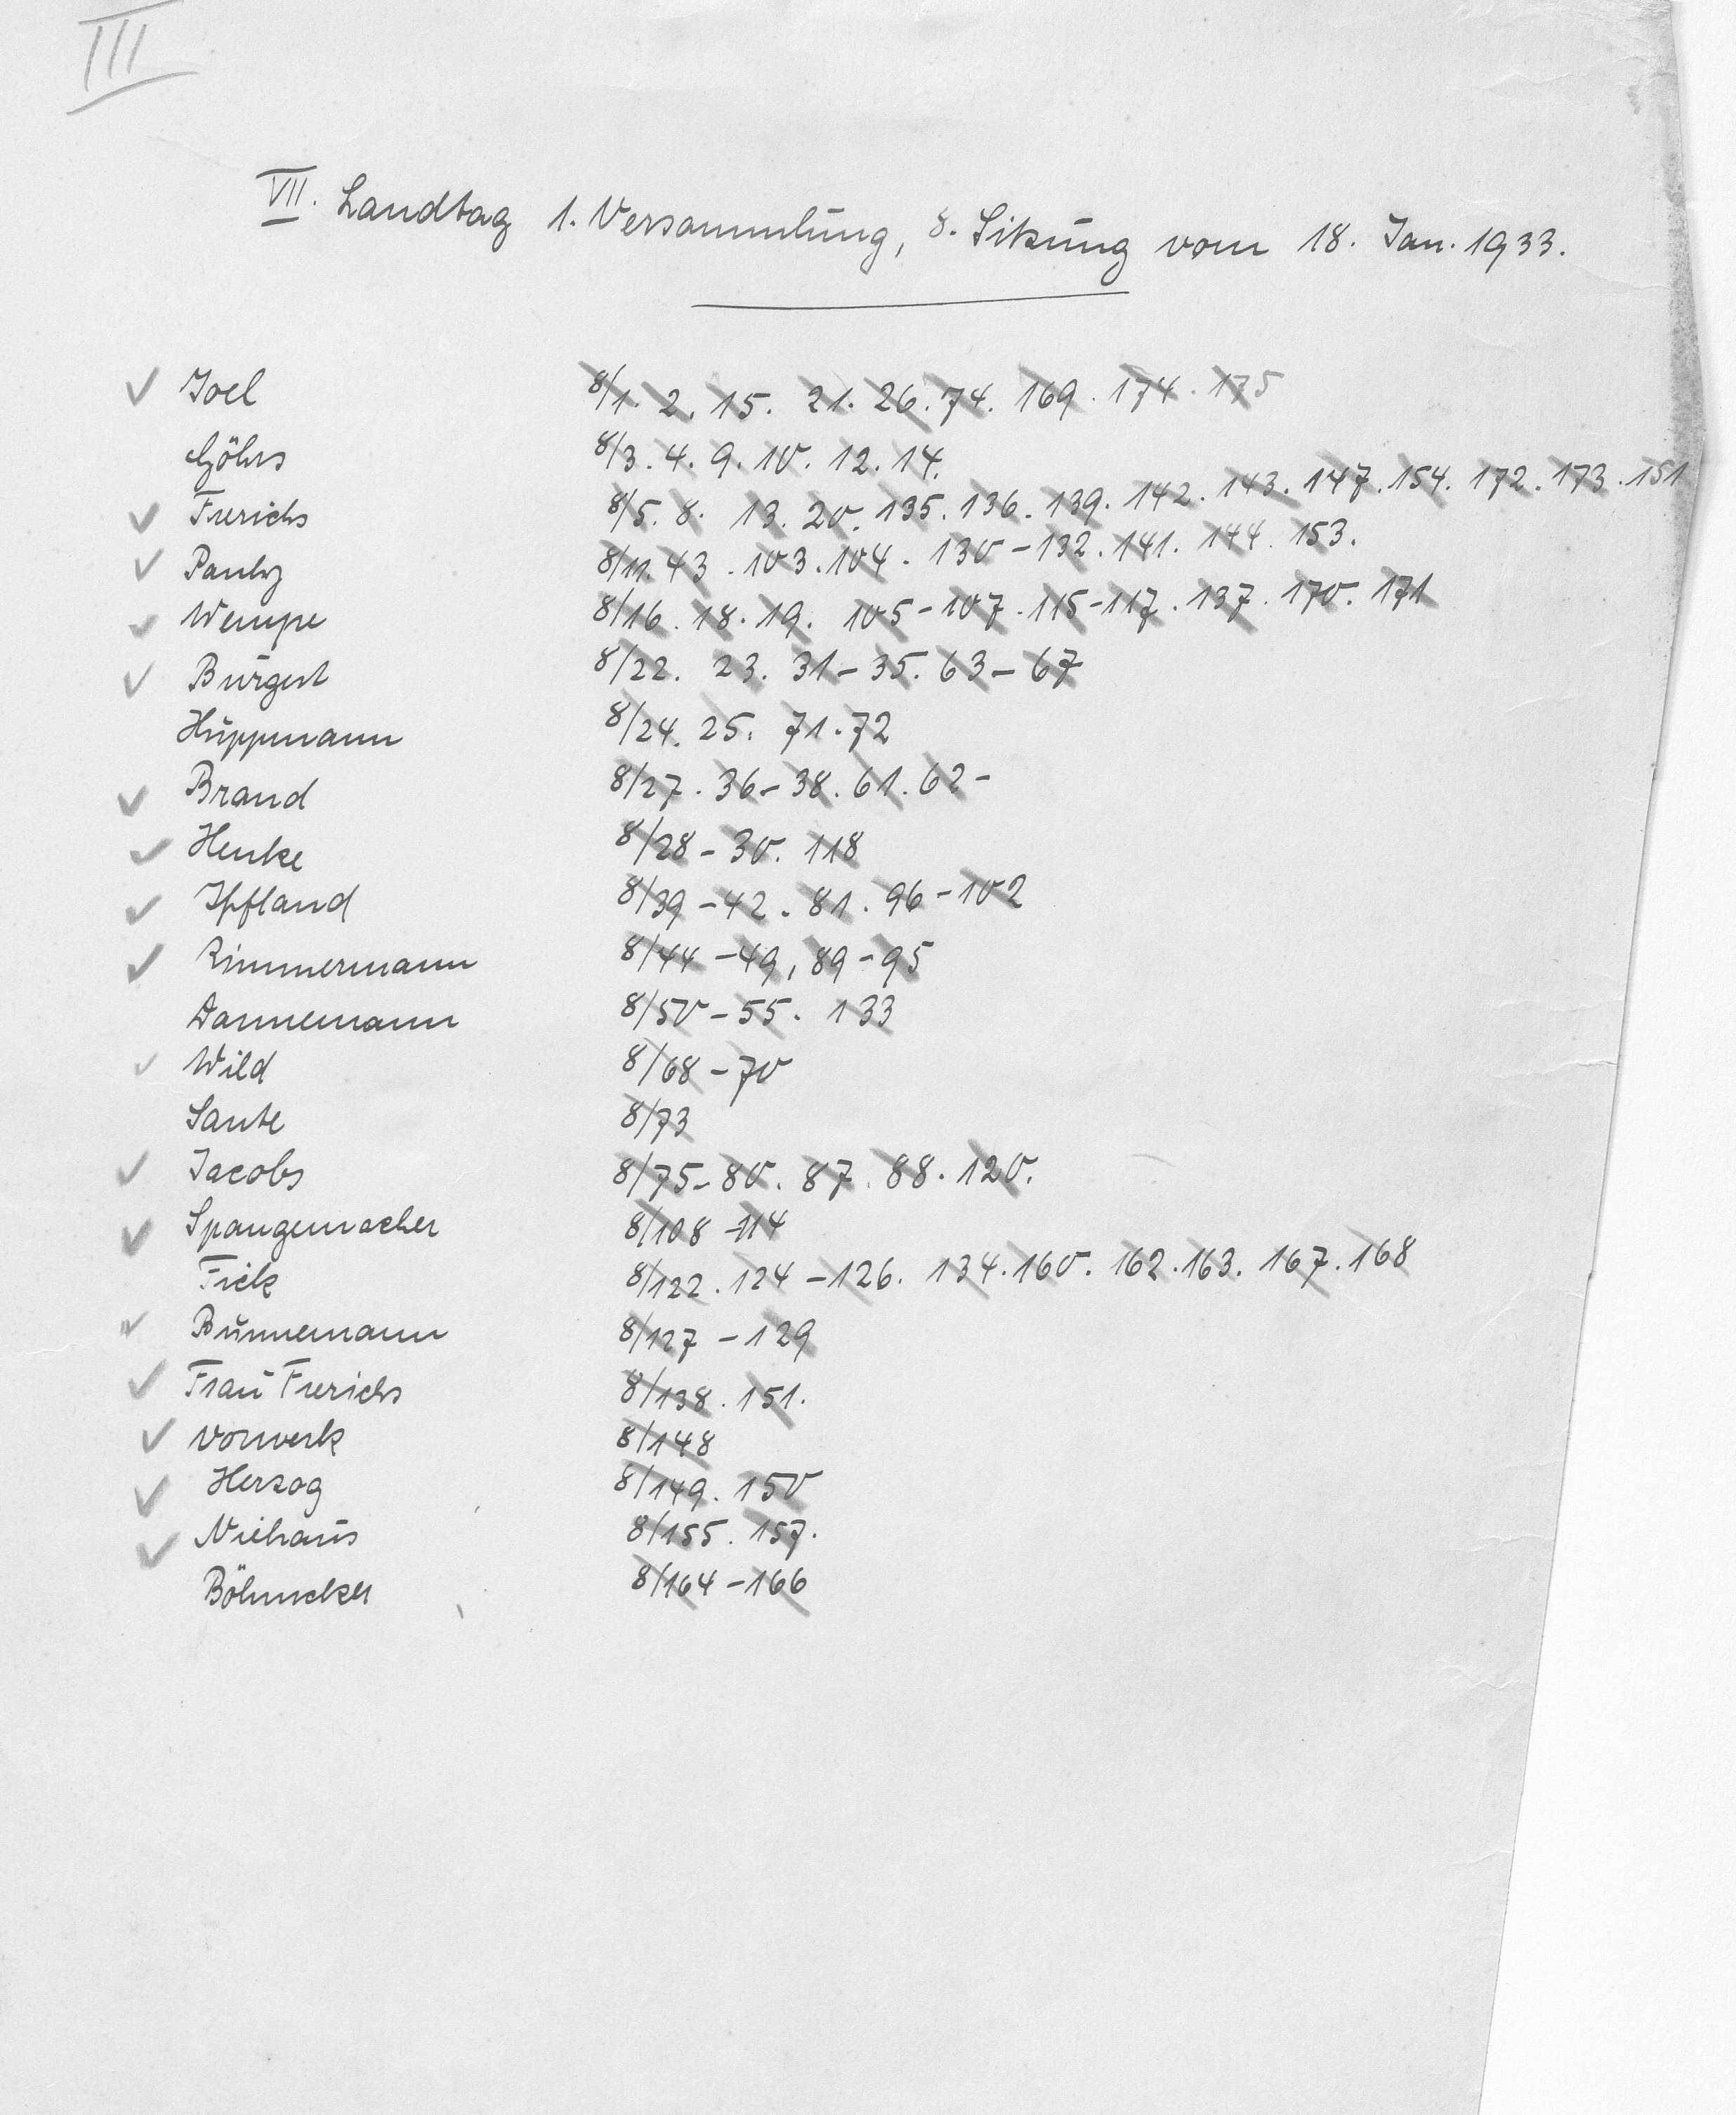 III
VII. Landtag 1. Versammlung, 8. Sitzung vom 18. Jan. 1933.
Joel 8/1. 2. 15. 21. 26. 74. 169. 174. 175
Göhrs 8/3. 4. 9. 10. 12. 14.
Frerichs 8/5. 8. 13. 20. 135. 136. 139. 142. 143. 147. 154. 172. 173. 151
Pauly 8/11. 43. 103. 104. 130-132. 141. 144. 153.
Wempe 8/16. 18. 19. 105-107. 115-117. 137. 170. 171
Burgert 8/22. 23. 31-35. 63-67
Hüppmann 8/24. 25. 71. 72
Brand 8/27. 36-38. 61. 62-
Henke 8/28-30. 118
Ipfland 8/39-42. 81. 96-102
Zimmermann 8/44-49, 89-95
Dannemann 8/50-55. 133
Wild 8/68-70
Sante 8/73
Jacobs 8/75-80. 87. 88. 120.
Spangemacher 8/108-114
Fick 8/122. 124-126. 134. 160. 162. 163. 167. 168
Bunnemann 8/127-129
Frau Frerichs 8/138. 151.
Vorwerk 8/148
Herzog 8/149. 150
Niehaus 8/155. 157.
Böhmcker 8/164-166